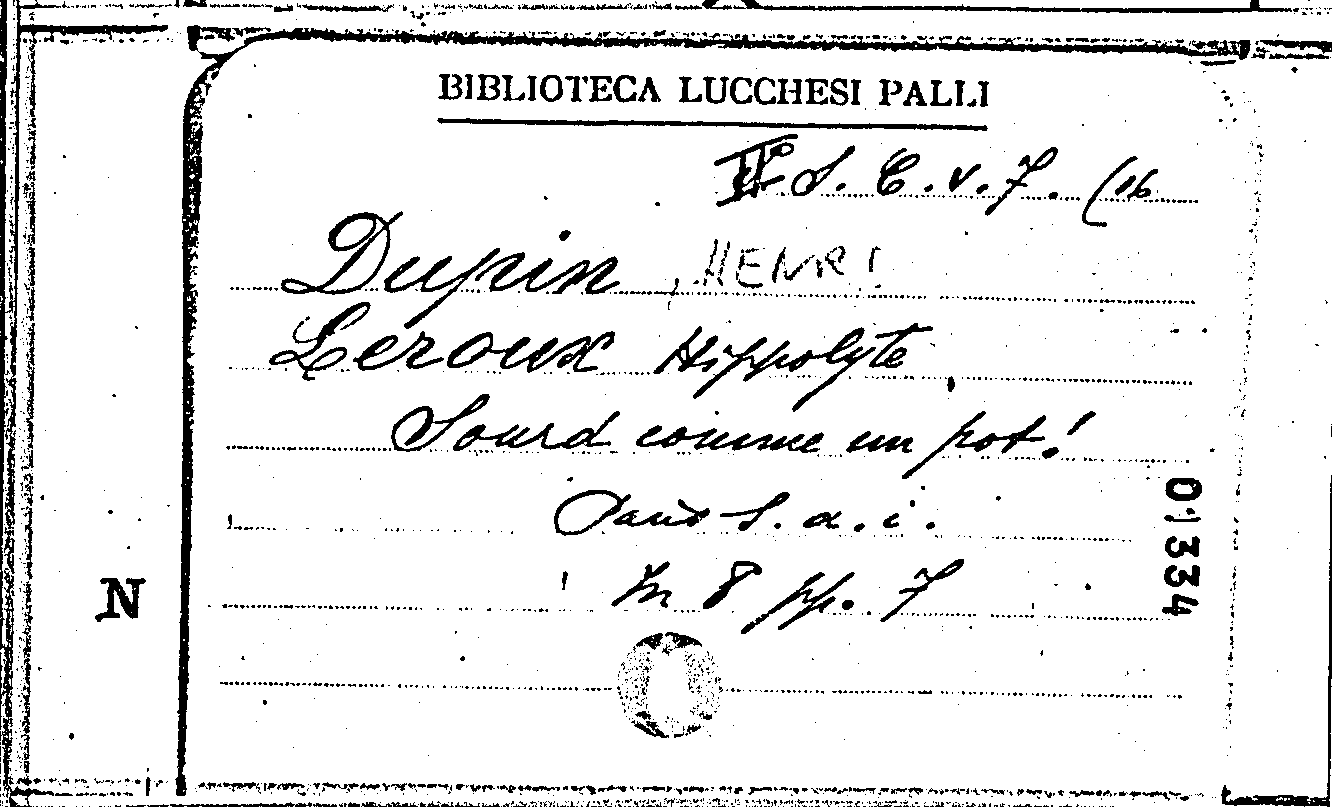 BIBLIOTECA LUCCHESI PALLI
IIª S. C. v. 7. (16
Dupin, HENRI
Leroux Hippolyte
Sourd comme un pot!
Paris s. a. i.
In 8 pp. 7
01334
N